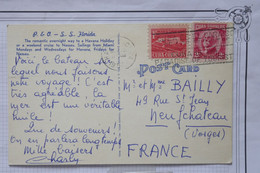 P. & O - S. S. Florida
The romantic overnight way to a Havana Holiday
or a weekend cruise to Nassau. Sailings from Miami
Mondays and Wednesdays for Havana; Fridays for
Nassau.
Voici le bateau sur
lequel nous faisons
notre voyage ! C'est
très agréable la
mer est une véritable
huile !
Que de souvenirs !
on en parlera longtemps
Mille baisers
Charly
POST CARD
Mr et Mme BAILLY
49 Rue St Jean
Neufchateau
(Vosges)
FRANCE